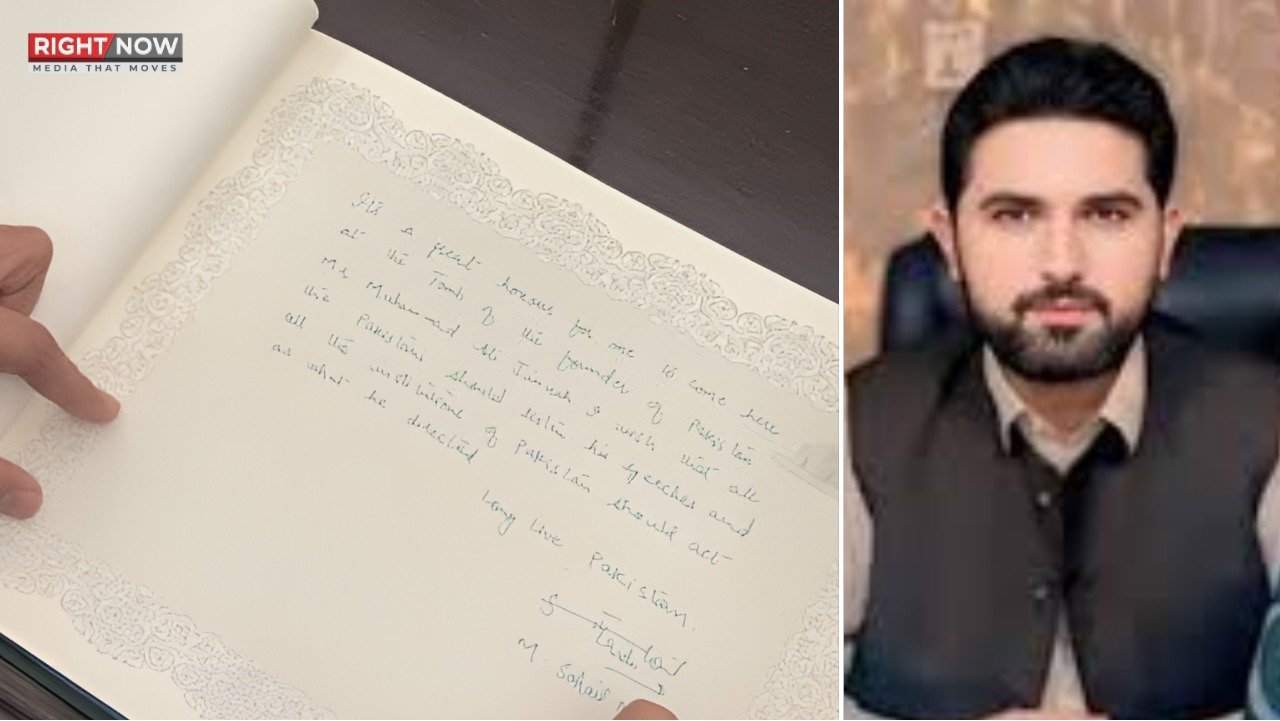 RIGHT NOW
MEDIA THAT MOVES
a great honour for me to come here
at the Tomb of the founder of Pakistan
Mr Muhammad Ali Jinnah I wish that all
the Pakistani should listen his speeches and
all the institutions of Pakistan should act
as what he directed
Long Live Pakistan.
M. Sohail